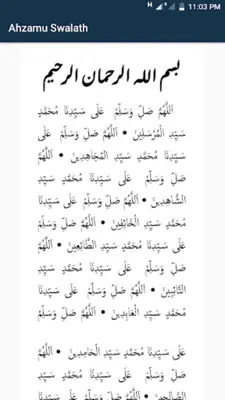 H 11:03 PM
Ahzamu Swalath
بسم الله الرحمان الرحيم
اَللَّهُمَّ صَلِّ وَسَلِّمْ عَلَى سَيِّدِنَا مُحَمَّدٍ
سَيِّدِ الْمُرْسَلِينَ • اَللَّهُمَّ صَلِّ وَسَلِّمْ عَلَى
سَيِّدِنَا مُحَمَّدٍ سَيِّدِ الْمُجَاهِدِينَ • اَللَّهُمَّ
صَلِّ وَسَلِّمْ عَلَى سَيِّدِنَا مُحَمَّدٍ سَيِّدِ
الشَّاهِدِينَ • اَللَّهُمَّ صَلِّ وَسَلِّمْ عَلَى سَيِّدِنَا
مُحَمَّدٍ سَيِّدِ الْخَائِفِينَ • اَللَّهُمَّ صَلِّ وَسَلِّمْ
عَلَى سَيِّدِنَا مُحَمَّدٍ سَيِّدِ الطَّائِعِينَ • اَللَّهُمَّ
صَلِّ وَسَلِّمْ عَلَى سَيِّدِنَا مُحَمَّدٍ سَيِّدِ
التَّائِبِينَ • اَللَّهُمَّ صَلِّ وَسَلِّمْ عَلَى سَيِّدِنَا
مُحَمَّدٍ سَيِّدِ الْعَابِدِينَ • اَللَّهُمَّ صَلِّ وَسَلِّمْ
عَلَى سَيِّدِنَا مُحَمَّدٍ سَيِّدِ الْحَامِدِينَ • اَللَّهُمَّ
صَلِّ وَسَلِّمْ عَلَى سَيِّدِنَا مُحَمَّدٍ سَيِّدِ
الصَّالِحِينَ • اَللَّهُمَّ صَلِّ وَسَلِّمْ عَلَى سَيِّدِنَا